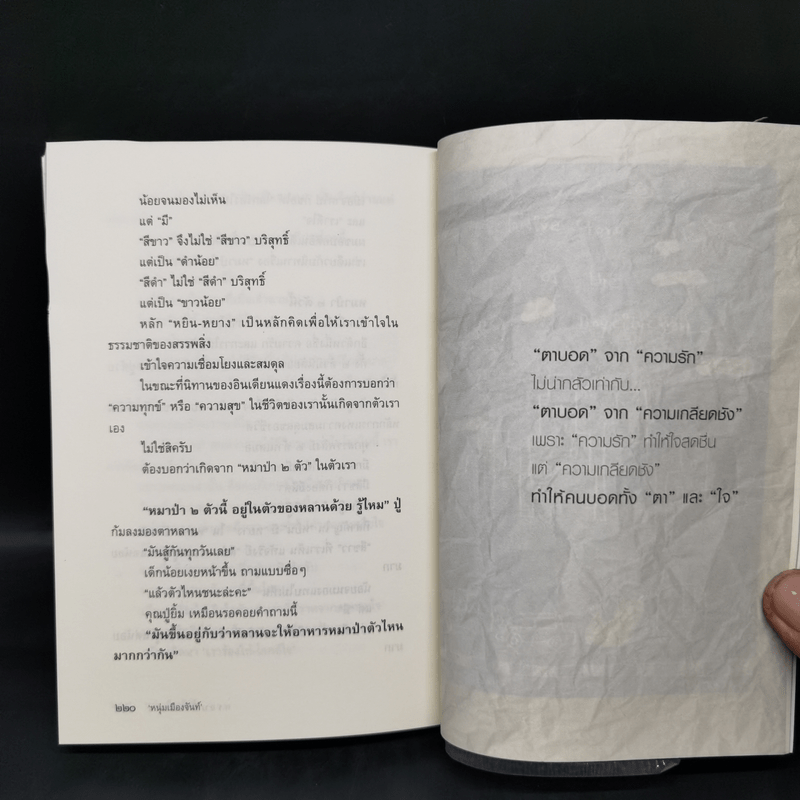 น้อยจนมองไม่เห็น
แต่ “มี”
“สีขาว” จึงไม่ใช่ “สีขาว” บริสุทธิ์
แต่เป็น “ดำน้อย”
“สีดำ” ไม่ใช่ “สีดำ” บริสุทธิ์
แต่เป็น “ขาวน้อย”
หลัก “หยิน-หยาง” เป็นหลักคิดเพื่อให้เราเข้าใจใน
ธรรมชาติของสรรพสิ่ง
เข้าใจความเชื่อมโยงและสมดุล
ในขณะที่นิทานของอินเดียนแดงเรื่องนี้ต้องการบอกว่า
“ความทุกข์” หรือ “ความสุข” ในชีวิตของเรานั้นเกิดจากตัวเรา
เอง
ไม่ใช่สิครับ
ต้องบอกว่าเกิดจาก “หมาป่า ๒ ตัว” ในตัวเรา
“หมาป่า ๒ ตัวนี้ อยู่ในตัวของหลานด้วย รู้ไหม” ปู่
ก้มลงมองตาหลาน
“มันสู้กันทุกวันเลย”
เด็กน้อยเงยหน้าขึ้น ถามแบบซื่อๆ
“แล้วตัวไหนชนะล่ะคะ”
คุณปู่ยิ้ม เหมือนรอคอยคำถามนี้
“มันขึ้นอยู่กับว่าหลานจะให้อาหารหมาป่าตัวไหน
มากกว่ากัน”
๒๒๐ ‘หนุ่มเมืองจันท์’
“ตาบอด” จาก “ความรัก”
ไม่น่ากลัวเท่ากับ...
“ตาบอด” จาก “ความเกลียดชัง”
เพราะ “ความรัก” ทำให้ใจสดชื่น
แต่ “ความเกลียดชัง”
ทำให้คนบอดทั้ง “ตา” และ “ใจ”